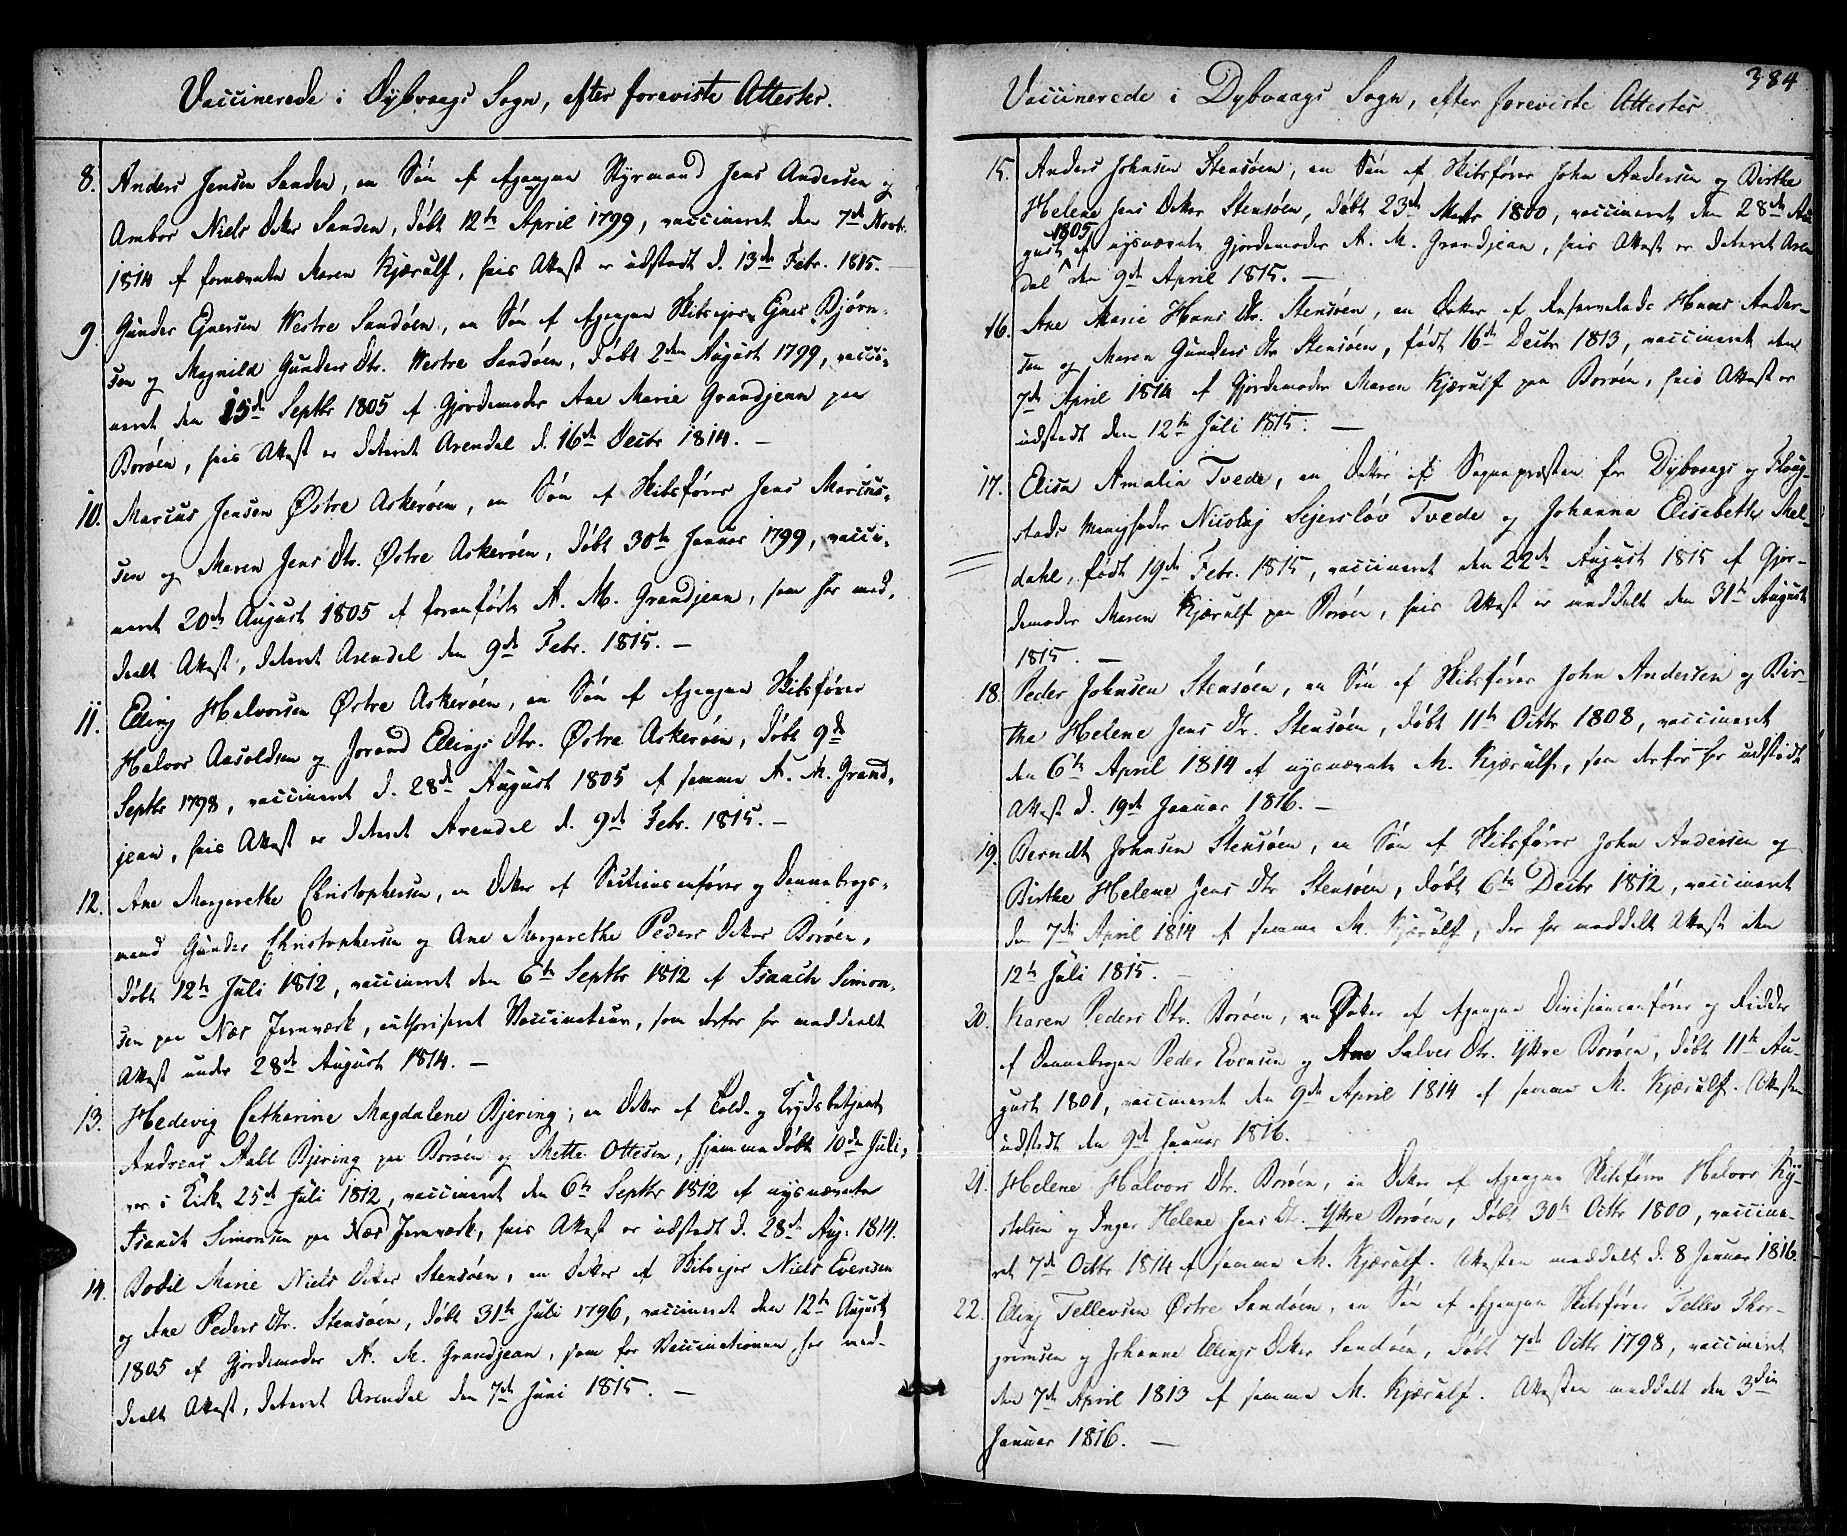 Vaccinerede i Dybvaags Sogn, efter foreviste Attester.
8. Anders Jensen Sanden, en Søn af Afgangne Styrmand Jens Andersen og
Ambor Niels Dotter Sanden, døbt 12te April 1799, vaccineret den 7de Novbr.
1814 af fornævnte Maren Kjærulf, hvis Attest er udstædt d. 13de Febr. 1815. —
9. Gunder Gjersen Westre Sandøen, en Søn af Afgangne Skibsejer Gjers Bjørn-
sen og Magnild Gunders Dtr. Westre Sandøen, døbt 2den August 1799, vacci-
neret den 15de Septbr 1805 af Gjordemoder Ane Marie Grandjean paa
Borøen, hvis Attest er dateret Arendal d. 16de Decbr 1814. —
10. Marcus Jensen Østre Askerøen, en Søn af Skibsfører Jens Marcus-
sen og Maren Jens Dtr. Østre Askerøen, døbt 30te Januar 1799, vacci-
neret 20de August 1805 af foranførte A. M. Grandjean, som har med-
deelt Attest, dateret Arendal den 9de Febr. 1815. —
11. Elling Halvorsen Østre Askerøen, en Søn af Afgangne Skibsfører
Halvor Aasoldsen og Jorand Ellings Dtr. Østre Askerøen, døbt 9de
Septbr 1798, vaccineret d. 28de August 1805 af samme A. M. Grand-
jean, hvis Attest er dateret Arendal d. 9de Febr. 1815. —
12. Ane Margarethe Christophersen, en Dotter af Sectionsanfører og Dannebrogs-
mand Gunder Christophersen og Ane Margarethe Peders Dotter Borøen,
døbt 12te Juli 1812, vaccineret den 6te Septbr 1812 af Isaach Simon-
sen paa Næs Jernværk, authoriseret Vaccinateur, som derfor har meddeelt
Attest under 28de August 1814. —
13. Hedevig Catharine Magdalene Bjering, en Dotter af Told- og Trydsbetjent
Andreas Aall Bjering paa Borøen og Mette Ottesen, hjemmedøbt 10de Juli,
var i Kirke 25de Juli 1812, vaccineret den 6te Septbr 1812 af nysnævnte
Isaach Simonsen paa Næs Jernværk, hvis Attest er udstædt d. 28de Aug. 1814.
14. Bodil Marie Niels Dotter Stensøen, en Dotter af Skibsejer Niels Evensen
og Ane Peders Dtr. Stensøen, døbt 31te Juli 1796, vaccineret den 12te August
1805 af Gjordemoder A. M. Grandjean, som for Vaccinationen har med-
deelt Attest, dateret Arendal den 7de Juni 1815. —
384
Vaccinerede i Dybvaags Sogn, efter foreviste Attester.
15. Anders Johnsen Stensøen, en Søn af Skibsfører John Andersen og Birthe
Helene Jens Dotter Stensøen, døbt 23de Marts 1800, vaccineret den 28de Au-
gust 1805 af nysnævnte Gjordemoder A. M. Grandjean, hvis Attest er dateret Aren-
dal den 9de April 1815. —
16. Ane Marie Hans Dtr. Stensøen, en Dotter af Hans Ander-
sen og Maren Gunders Dtr Stensøen, født 16de Decbr 1813, vaccineret den
7de April 1814 af Gjordemoder Maren Kjærulf paa Borøen, hvis Attest er
udstædt den 12te Juli 1815. —
17. Elisa Amalia Tvede, en Dotter af Sognepræsten for Dybvaags og Flaug-
stads Menigheder Nicolaj Sejersløv Tvede og Johanna Elisabetha Mel-
dahl, født 19de Febr. 1815, vaccineret den 22de August 1815 af Gjor-
demoder Maren Kjærulf paa Borøen, hvis Attest er meddelt den 31te August
1815. —
18. Peder Johnsen Stensøen, en Søn af Skibsfører John Andersen og Bir-
the Helene Jens Dtr. Stensøen, døbt 11te Octbr 1808, vaccineret
den 6te April 1814 af nysnævnte M. Kjærulf, som derfor har udstædt
Attest d. 19de Januar 1816. —
19. Berndt Johnsen Stensøen, en Søn af Skibsfører John Andersen og
Birthe Helene Jens Dtr Stensøen, døbt 6te Decbr 1812, vaccineret
den 7de April 1814 af samme M. Kjærulf, der har meddelt Attest den
12te Juli 1815. —
20. Karen Peders Dtr. Borøen, en Dotter af Afgangne Divisionsanfører og Ridder
af Dannebrogen Peder Evensen og Ane Salves Dtr. Ytre Borøen, døbt 11te Au-
gust 1801, vaccineret den 9de April 1814 af samme M. Kjærulf. Attesten
udstædt den 9de Januar 1816.
21. Helene Halvors Dtr. Borøen, en Dotter af Afgangne Skibsfører Halvor Ky-
stelsen og Inger Helene Jens Dtr. Ytre Borøen, døbt 30te Octbr 1800, vaccine-
ret 7de Octbr 1814 af samme M. Kjærulf. Attesten meddelt d. 8 Januar 1816.
22. Elling Tellevsen Østre Sandøen, en Søn af Afgangne Skibsfører Tellev Thor-
grimsen og Johanne Ellings Dotter Sandøen, døbt 7de Octbr 1798, vaccineret
den 7de April 1813 af samme M. Kjærulf. Attesten meddelt den 3die
Januar 1816. —